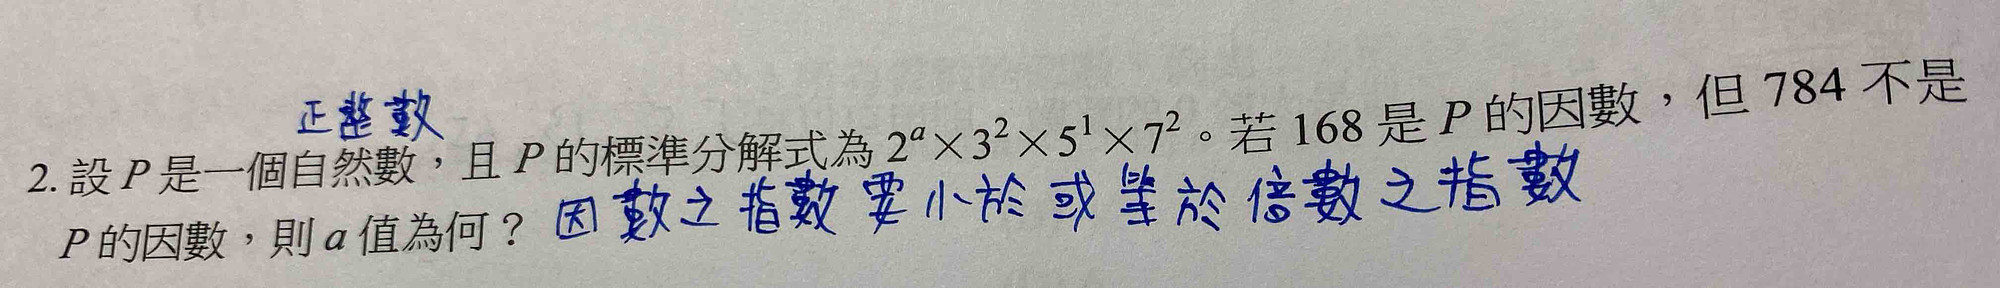 正整數
2. 設 P 是一個自然數，且 P 的標準分解式為 2ᵃ×3²×5¹×7²。若 168 是 P 的因數，但 784 不是
P 的因數，則 a 值為何？ 因數之指數要小於或等於倍數之指數